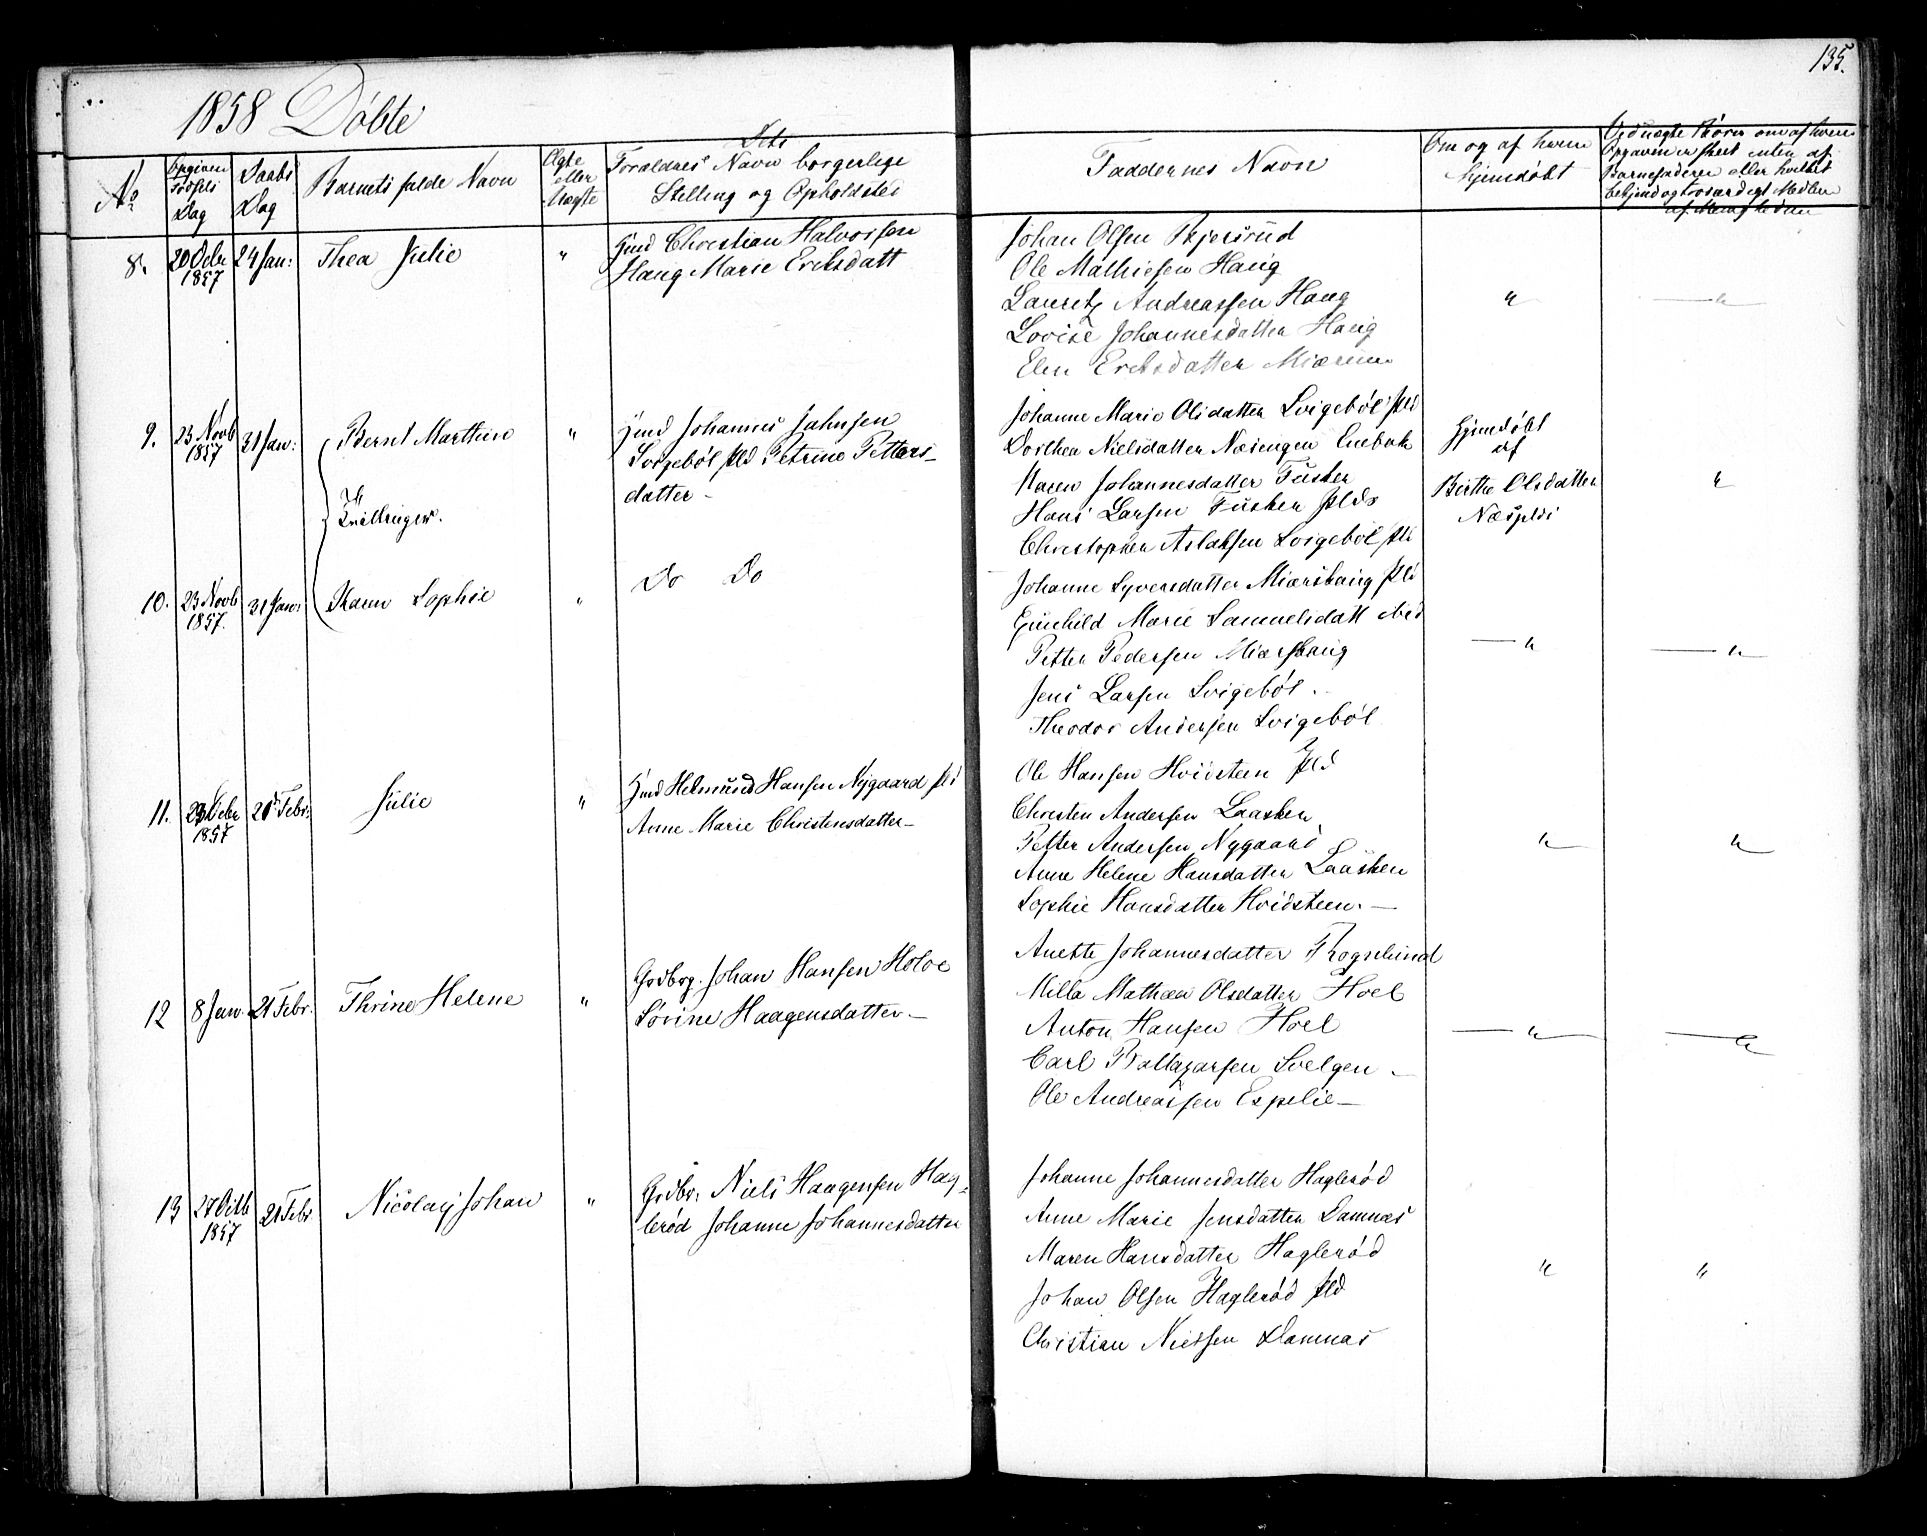 135.
1858 Döbte
No
Opgiven Födsels Dag
Daabs Dag
Barnets fulde Navn
Ægte eller Uægte
Dets Foraldres Navn borgerlige
Stilling og Opholdsted
Faddernes Navn
Om og af hvem
hjemdöbt
Ved uægte Börn om af hvem
Opgaven er skeet enten af
Barnefaderen eller hvilket
bekjend og troværdigt Medlem
af Menigheden
8. 20 Decbr 1857 24 Jan: Thea Julie "
Gmd Christian Halvorsen
Haug Marie Ericsdatt
Johan Olsen Bjersrud
Ole Mathiesen Haug
Lauretz Andreassen Haug
Lovise Johannesdatter Haug
Elen Ericsdatter Miærum
" "
9. 23 Novb 1857 31 Jan: Bernt Marthin "
Tvillinger.
Gmd Johannes Jahnsen
Svigeböl Pld Petrine Petters-
datter -
Johanne Marie Olsdatter Svigeböl Pld
Dorthea Nielsdatter Næsengen Enebak
Maren Johannesdatter Fusker
Hans Larsen Fusker Plds
Christopher Aslaksen Svigeböl Pld
Hjemdöbt
af
Birthe Olsdatter
Næsplds
"
10. 23 Novb 1857. 31 Jan: Karen Sophie "
Do Do
Johanne Syversdatter Miærskaug Pld
Gunhild Marie Samuelsdatt ibid
Petter Pedersen Miærskaug
Jens Larsen Svigeböl.
Theodor Andersen Svigeböl
" "
11. 29 Decbr 1857 21 Febr: Julie "
Gmd Helmund Hansen Nygaard Pld
Anne Marie Christensdatter-
Ole Hansen Hvidsteen Pld
Christen Andersen Laasken
Petter Andersen Nygaard
Anne Helene Hansdatter Laasken
Sophie Hansdatter Hvidsteen. -
" "
12 8 Jan. 21 Febr. Thrine Helene "
Grdbrg. Johan Hansen Holoe
Sörine Haagensdatter -
Anette Johannesdatter Krogselund
Milla Mathea Olsdatter Hoel
Anton Hansen Hoel
Carl Baltazarsen Svelgen -
Ole Andreassen Espelie -
" "
13 27 Octb 1857 21 Febr Nicolay Johan "
Grdbr: Niels Haagensen Hag-
leröd Johanne Johannesdatter
Johanne Johannesdatter Hagleröd
Anne Marie Jensdatter Damnæs
Maren Hansdatter Hagleröd
Johan Olsen Hagleröd Pld
Christian Nielsen Damnæs
" "